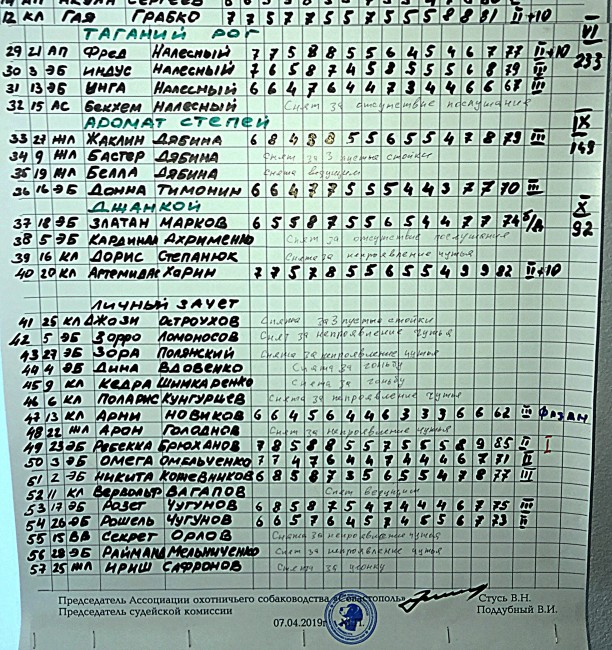 12 КЛ ГАЯ ГРАБКО 7 7 5 7 7 5 5 7 5 5 5 8 8 81 II+10
ТАГАНИЙ РОГ
VI
233
29 21 АП ФРЕД НАЛЕСНЫЙ 7 7 5 8 8 5 5 6 4 5 4 6 7 77 II+10
30 3 ЭБ ИНДУС НАЛЕСНЫЙ 7 6 5 8 7 4 5 8 5 5 5 6 8 79 III
31 13 ЭБ ИНГА НАЛЕСНЫЙ 6 6 4 7 6 4 4 7 3 4 4 6 6 67 III
32 15 АС БЕКХЕМ НАЛЕСНЫЙ Снят за отсутствие послушания
АРОМАТ СТЕПЕЙ
IX
149
33 27 ЖЛ ЖАКЛИН ДЯБИНА 6 8 4 8 8 5 5 6 5 4 7 8 79 III
34 9 ЖЛ БАСТЕР ДЯБИНА Снят за 3 пустых стойки
35 19 ЖЛ БЕЛЛА ДЯБИНА Снята ведущим
36 16 ЭБ ДОННА ТИМОНИН 6 6 4 7 7 5 5 5 4 4 3 7 7 70 III
ДЖАНКОЙ
X
92
37 18 ЭБ ЗЛАТАН МАРКОВ 6 5 5 8 7 5 5 6 5 4 4 7 7 74 б/д
38 5 ЭБ КАРДИНАЛ АХРИМЕНКО Снят за отсутствие послушания
39 16 КЛ ДОРИС СТЕПАНЮК Снята за непроявление чутья
40 20 КЛ АРТЕМИДА ХАРИН 7 7 5 7 8 5 5 6 5 5 4 9 9 82 II+10
ЛИЧНЫЙ ЗАЧЕТ
41 25 КЛ ДЖАЗИ ОСТРОУХОВ Снята за 3 пустые стойки
42 5 ЭБ ЗОРРО ЛОМОНОСОВ Снят за непроявление чутья
43 27 ЭБ ЗОРА ПОЛЯНСКИЙ Снята за непроявление чутья
44 4 ЭБ ДИНА ВДОВЕНКО Снята за гоньбу
45 9 КЛ КЕДРА ШИМКАРЕНКО Снята за гоньбу
46 6 КЛ ПОЛАРИС КУНГУРЦЕВ Снята за непроявление чутья
47 13 КЛ АРНИ НОВИКОВ 6 6 4 5 6 4 4 6 3 3 3 6 6 62 III Фазан
48 22 ЖЛ АРОН ГОЛОДНОВ Снят за непроявление чутья
49 23 ЭБ РЕБЕККА БРЮХАНОВ 7 8 5 8 8 5 5 7 5 5 5 8 9 85 II I
50 3 ЭБ ОМЕГА ОМЕЛЬЧЕНКО 7 7 4 7 6 4 4 7 4 4 4 6 7 71 II
51 2 ЭБ НИКИТА КОЖЕВНИКОВ 6 8 5 8 7 3 5 6 5 5 4 7 8 77 III
52 11 КЛ ВЕРВОЛЬФ ВАГАПОВ Снят ведущим
53 17 ЭБ РОЗЕТ ЧУГУНОВ 6 8 5 8 7 5 4 7 4 4 4 6 7 75 III
54 26 ЭБ РОШЕЛЬ ЧУГУНОВ 6 6 5 7 6 4 5 7 4 5 5 6 7 73 II
55 15 ВВ СЕКРЕТ ОРЛОВ Снята за непроявление чутья
56 28 ЭБ РАЙМАНД МЕЛЬНИЧЕНКО Снят за непроявление чутья
57 25 ЖЛ ИРИШ САФРОНОВ Снята за угонку
Председатель Ассоциации охотничьего собаководства «Севастополь» Стусь В.Н.
Председатель судейской комиссии Поддубный В.И.
07.04.2019г.